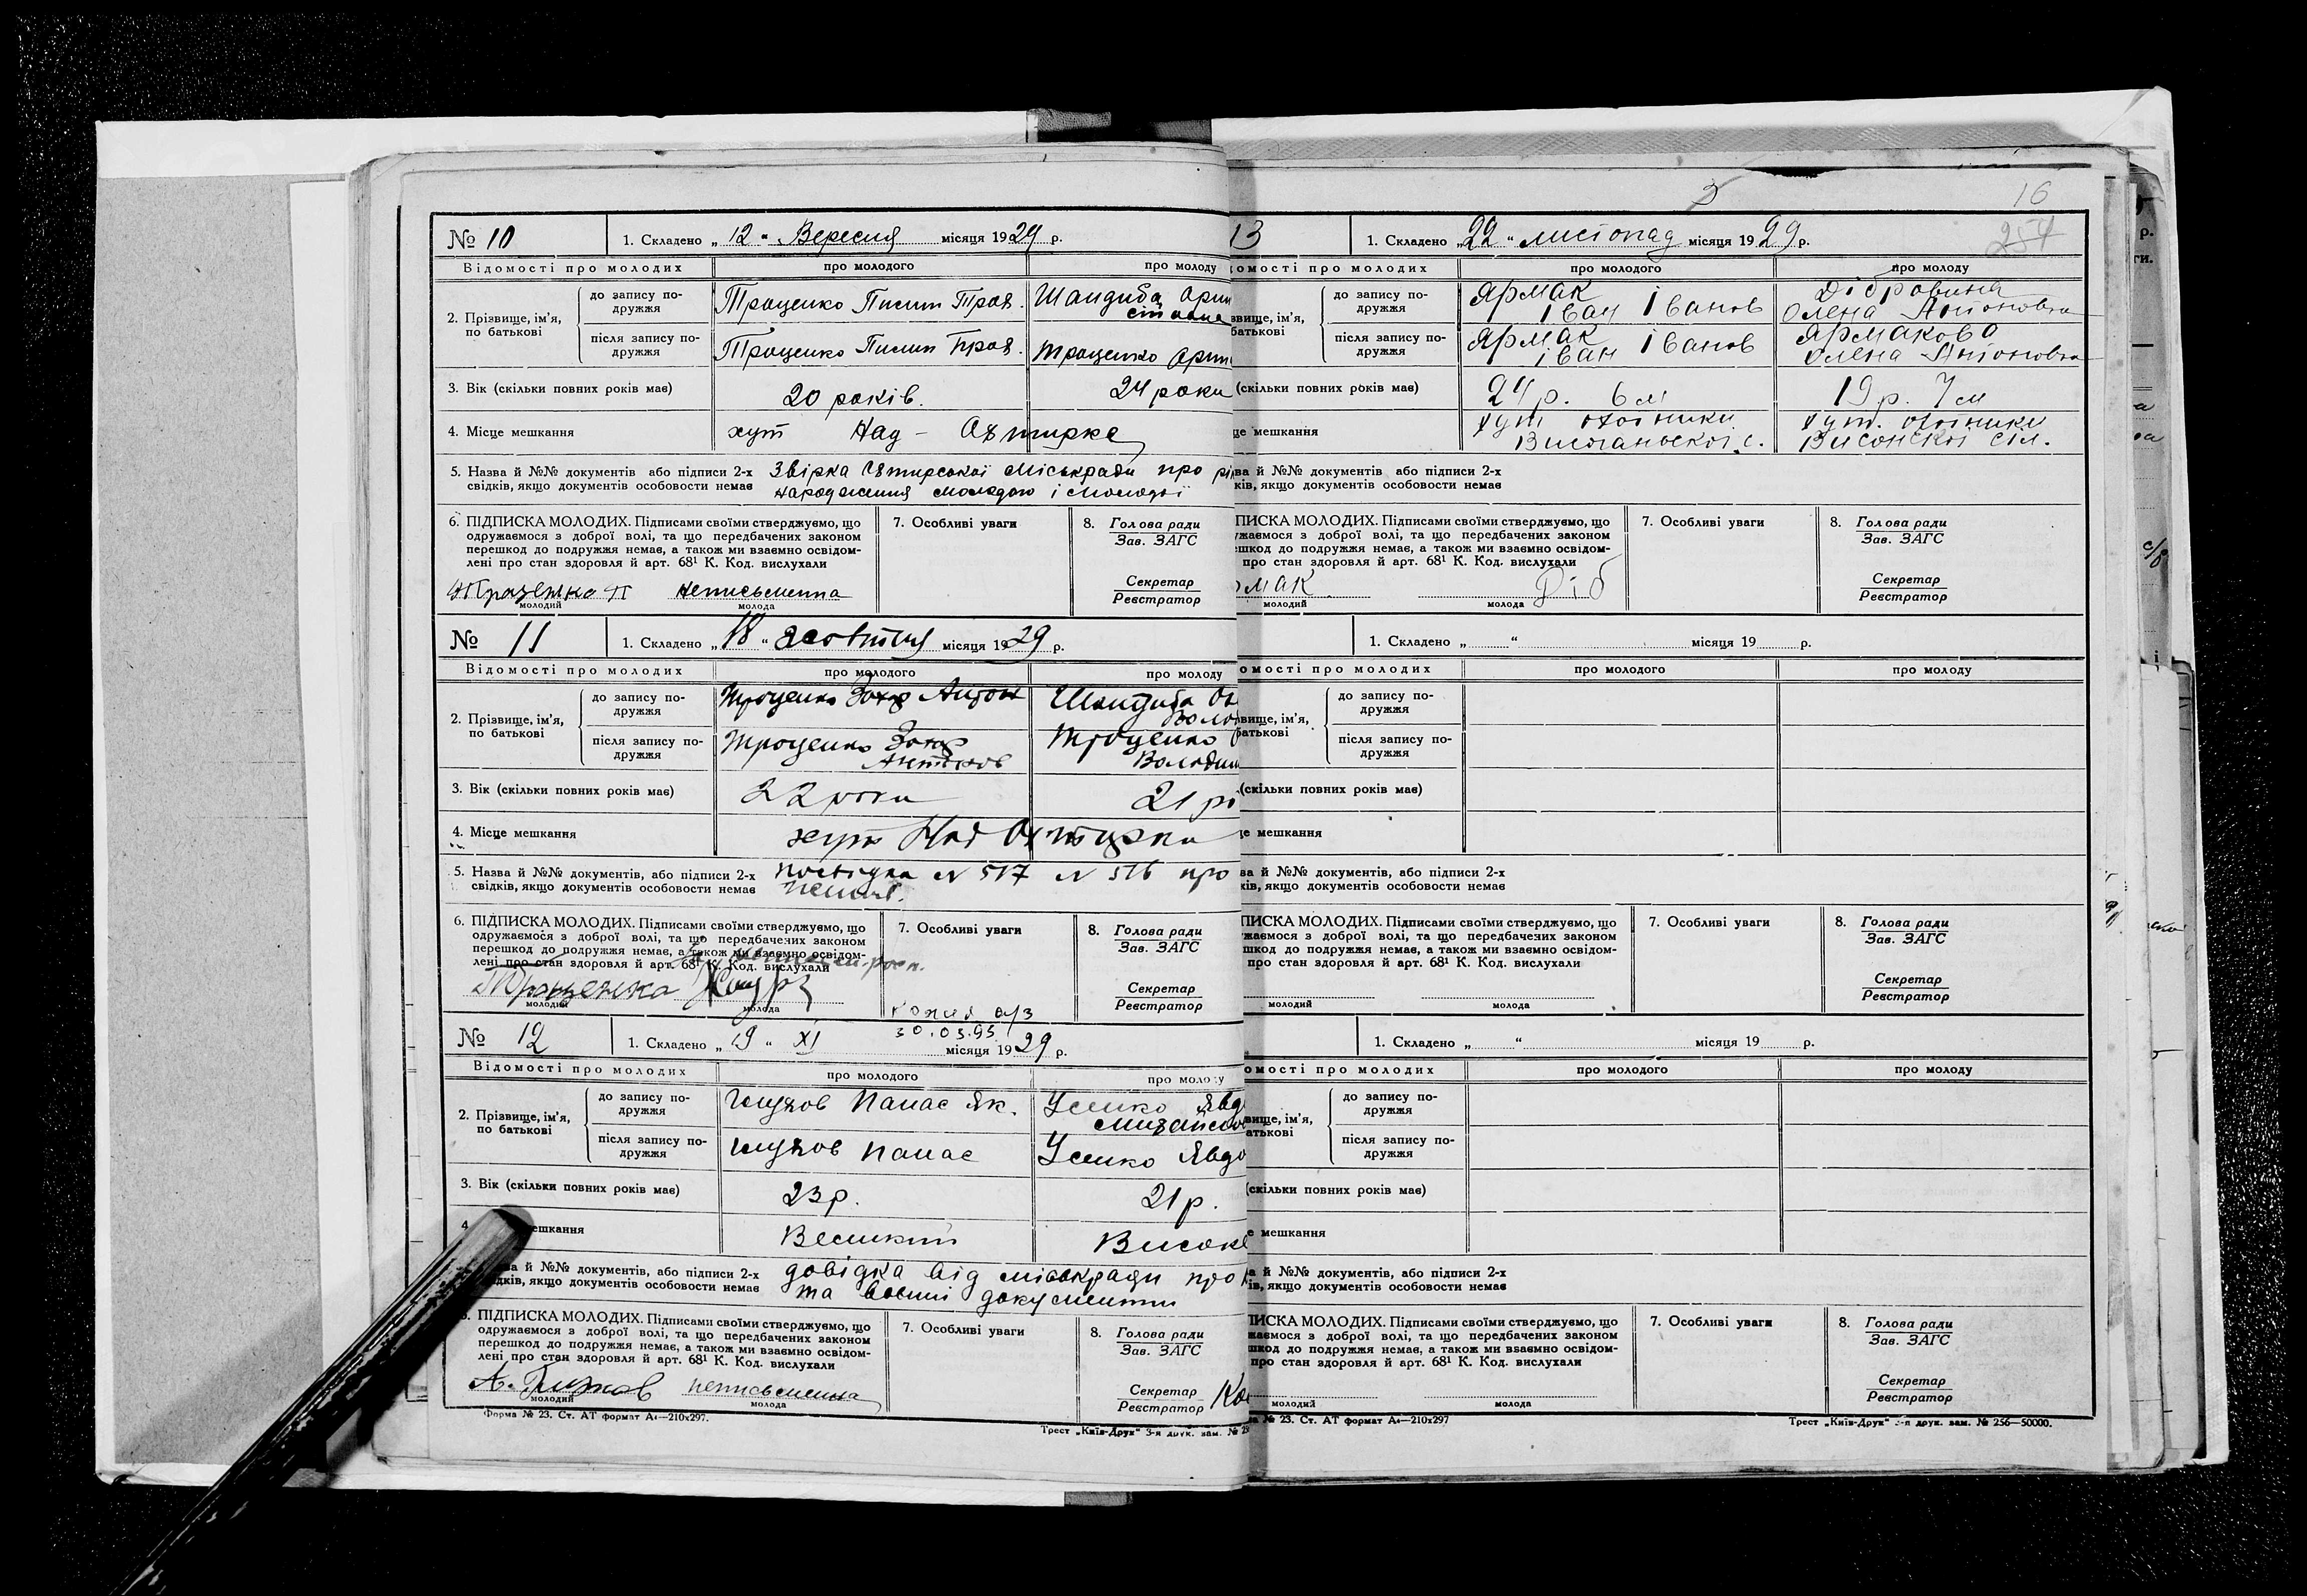 № 10
1. Складено „ 12 " Вересня місяця 1929 р.
Відомості про молодих
про молодого
про молоду
2. Прізвище, ім'я, по батькові
до запису подружжя
Троценко Пилип Трох.
Шандиба Орин
після запису подружжя
Троценко Пилип Трох.
Троценко Орин
3. Вік (скільки повних років має)
20 років.
24 роки
4. Місце мешкання
хут Над - Охтирка
5. Назва й №№ документів або підписи 2-х
свідків, якщо документів особовости немає
Звірка Охтирської Міськради про
народження молодого і молодої
6. ПІДПИСКА МОЛОДИХ. Підписами своїми стверджуємо, що
одружаємося з доброї волі, та що передбачених законом
перешкод до подружжя немає, а також ми взаємно освідом-
лені про стан здоров'я й арт. 68¹ К. Код. вислухали
Троценко П неписьменна
молодий
молода
7. Особливі уваги
8. Голова ради
Зав. ЗАГС
Секретар
Реєстратор
№ 11
1. Складено „ 18 " жовтня місяця 1929 р.
Відомості про молодих
про молодого
про молоду
2. Прізвище, ім'я,
по батькові
до запису по-
дружжя
Троценко Захар Антон
Шандиба
після запису по-
дружжя
Троценко Захар
Антонов
Троценко
Володим
3. Вік (скільки повних років має)
22 роки
21 рі
4. Місце мешкання
хут Над Охтирка
5. Назва й №№ документів, або підписи 2-х
свідків, якщо документів особовости немає
посвідка N 517 N 516 про
6. ПІДПИСКА МОЛОДИХ. Підписами своїми стверджуємо, що
одружаємося з доброї волі, та що передбачених законом
перешкод до подружжя немає, а також ми взаємно освідом-
лені про стан здоровля й арт. 68¹ К. Код. вислухали
Троценко
молодий
молода
7. Особливі уваги
8. Голова ради
Зав. ЗАГС
Секретар
Реєстратор
30.03.95
№ 12
1. Складено „ 19 " XI місяця 1929 р.
Відомості про молодих
про молодого
про молоду
2. Прізвище, ім'я,
по батькові
до запису по-
дружжя
Панас Як.
Усенко Явд
після запису по-
дружжя
Панас
Усенко Явдо
3. Вік (скільки повних років має)
23 р.
21 р.
4
ешкання
Високе
й №№ документів, або підписи 2-х
дків, якщо документів особовости немає
довідка від міськради про
та воєнні документи
ПІДПИСКА МОЛОДИХ. Підписами своїми стверджуємо, що
одружаємося з доброї волі, та що передбачених законом
перешкод до подружжя немає, а також ми взаємно освідом-
лені про стан здоровля й арт. 68¹ К. Код. вислухали
неписьменна
молодий
молода
7. Особливі уваги
8. Голова ради
Зав. ЗАГС
Секретар
Реєстратор
Форма № 23. Ст. АТ формат А₄—210х297.
Трест „Київ-Друк" 3-я друк. зам. №
16
254
13
1. Складено „22 " листопад місяця 1929 р.
омості про молодих
про молодого
про молоду
звище, ім'я,
батькові
до запису по-
дружжя
Ярмак
Іван Іванов
Дібровина
Олена Антоновна
після запису по-
дружжя
Ярмак
іван Іванов
Ярмакова
Олена Антоновна
(скільки повних років має)
24 р. 6 м
19 р. 7 м
це мешкання
хут. охотники
хут. охотники
ва й №№ документів або підписи 2-х
ків, якщо документів особовости немає
ПИСКА МОЛОДИХ. Підписами своїми стверджуємо, що
ужаємося з доброї волі, та що передбачених законом
ешкод до подружжя немає, а також ми взаємно освідом-
про стан здоровля й арт. 68¹ К. Код. вислухали
рмак
Діб
молодий
молода
7. Особливі уваги
8. Голова ради
Зав. ЗАГС
Секретар
Реєстратор
1. Складено „ " місяця 19 р.
омості про молодих
про молодого
про молоду
звище, ім'я,
батькові
до запису по-
дружжя
після запису по-
дружжя
(скільки повних років має)
це мешкання
ва й №№ документів, або підписи 2-х
ків, якщо документів особовости немає
ПИСКА МОЛОДИХ. Підписами своїми стверджуємо, що
жаємося з доброї волі, та що передбачених законом
шкод до подружжя немає, а також ми взаємно освідом-
про стан здоровля й арт. 68¹ К. Код. вислухали
молодий
молода
7. Особливі уваги
8. Голова ради
Зав. ЗАГС
Секретар
Реєстратор
1. Складено „ " місяця 19 р.
омості про молодих
про молодого
про молоду
вище, ім'я,
атькові
до запису по-
дружжя
після запису по-
дружжя
(скільки повних років має)
е мешкання
а й №№ документів, або підписи 2-х
ів, якщо документів особовости немає
ПИСКА МОЛОДИХ. Підписами своїми стверджуємо, що
жаємося з доброї волі, та що передбачених законом
шкод до подружжя немає, а також ми взаємно освідом-
про стан здоровля й арт. 68¹ К. Код. вислухали
молодий
молода
7. Особливі уваги
8. Голова ради
Зав. ЗАГС
Секретар
Реєстратор
№ 23. Ст. АТ формат А₄—210х297
Трест „Київ-Друк" 3-я друк. зам. № 256—50000.